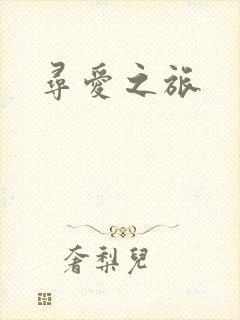 尋愛之旅
奢梨兒